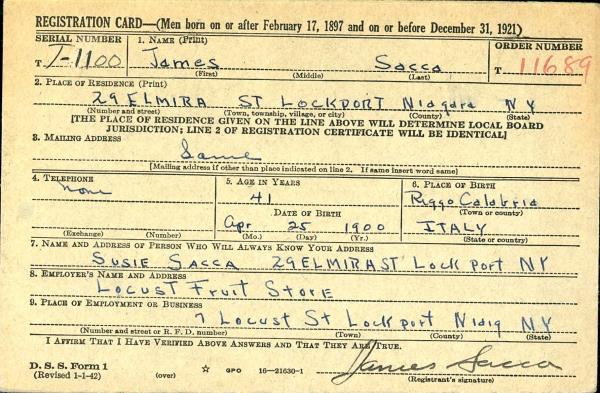 REGISTRATION CARD—(Men born on or after February 17, 1897 and on or before December 31, 1921)
SERIAL NUMBER 1. NAME (Print) ORDER NUMBER
T T-1100 James Sacca T 11689
(First) (Middle) (Last)
2. PLACE OF RESIDENCE (Print)
29 ELMIRA ST LOCKPORT Niagara NY
(Number and street) (Town, township, village, or city) (County) (State)
[THE PLACE OF RESIDENCE GIVEN ON THE LINE ABOVE WILL DETERMINE LOCAL BOARD
JURISDICTION; LINE 2 OF REGISTRATION CERTIFICATE WILL BE IDENTICAL]
3. MAILING ADDRESS
Same
[Mailing address if other than place indicated on line 2. If same insert word same]
4. TELEPHONE 5. AGE IN YEARS 6. PLACE OF BIRTH
none 41 Riggo Calabria
(Town or county)
DATE OF BIRTH
Apr 25 1900 ITALY
(Exchange) (Number) (Mo.) (Day) (Yr.) (State or country)
7. NAME AND ADDRESS OF PERSON WHO WILL ALWAYS KNOW YOUR ADDRESS
SUSIE SACCA 29 ELMIRA ST Lock port NY
8. EMPLOYER'S NAME AND ADDRESS
LOCUST Fruit STORE
9. PLACE OF EMPLOYMENT OR BUSINESS
7 Locust St Lock port Niag NY
(Number and street or R. F. D. number) (Town) (County) (State)
I AFFIRM THAT I HAVE VERIFIED ABOVE ANSWERS AND THAT THEY ARE TRUE.
D. S. S. Form 1
(Revised 1-1-42) (over) ☆ GPO 16—21630-1 James Sacca
(Registrant's signature)